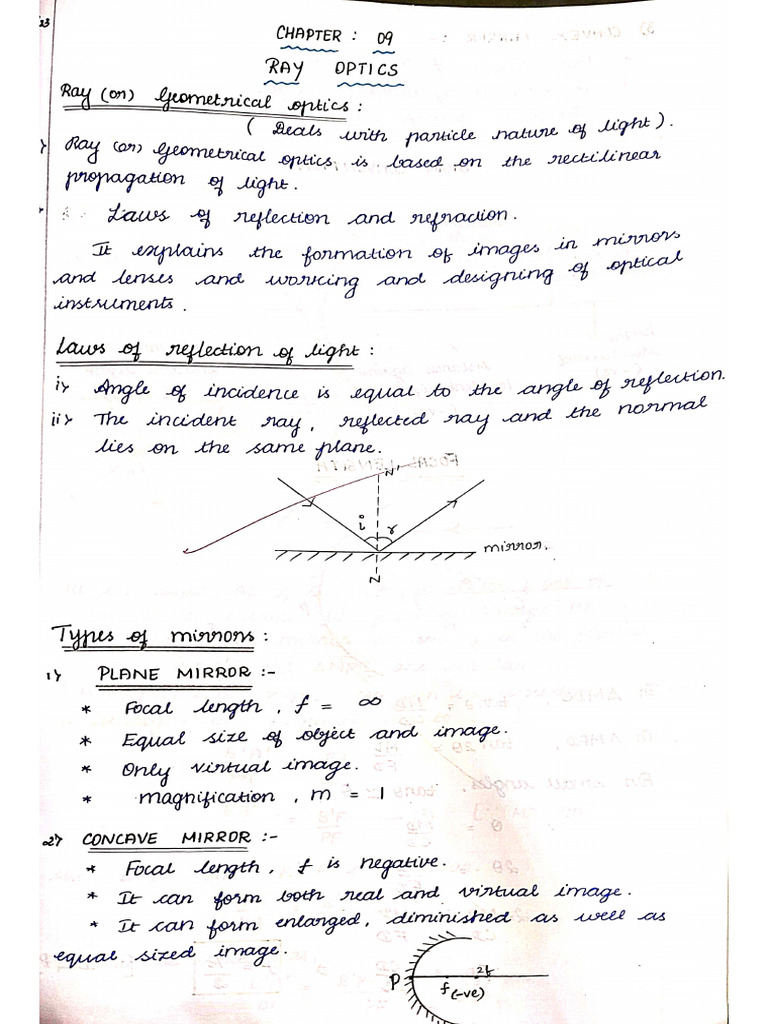 23
CHAPTER : 09
RAY OPTICS
Ray (or) Geometrical optics :
( Deals with particle nature of light ).
Ray (or) Geometrical optics is based on the rectilinear
propagation of light.
Laws of reflection and refraction.
It explains the formation of images in mirrors
and lenses and working and designing of optical
instruments.
Laws of reflection of light :
i> Angle of incidence is equal to the angle of reflection.
ii> The incident ray, reflected ray and the normal
lies on the same plane.
N'
i r
mirror.
N
Types of mirrors :
1> PLANE MIRROR :-
* Focal length, f = ∞
* Equal size of object and image.
* Only virtual image.
* magnification, m = 1
2> CONCAVE MIRROR :-
* Focal length, f is negative.
* It can form both real and virtual image.
* It can form enlarged, diminished as well as
equal sized image.
P f (-ve) 2f